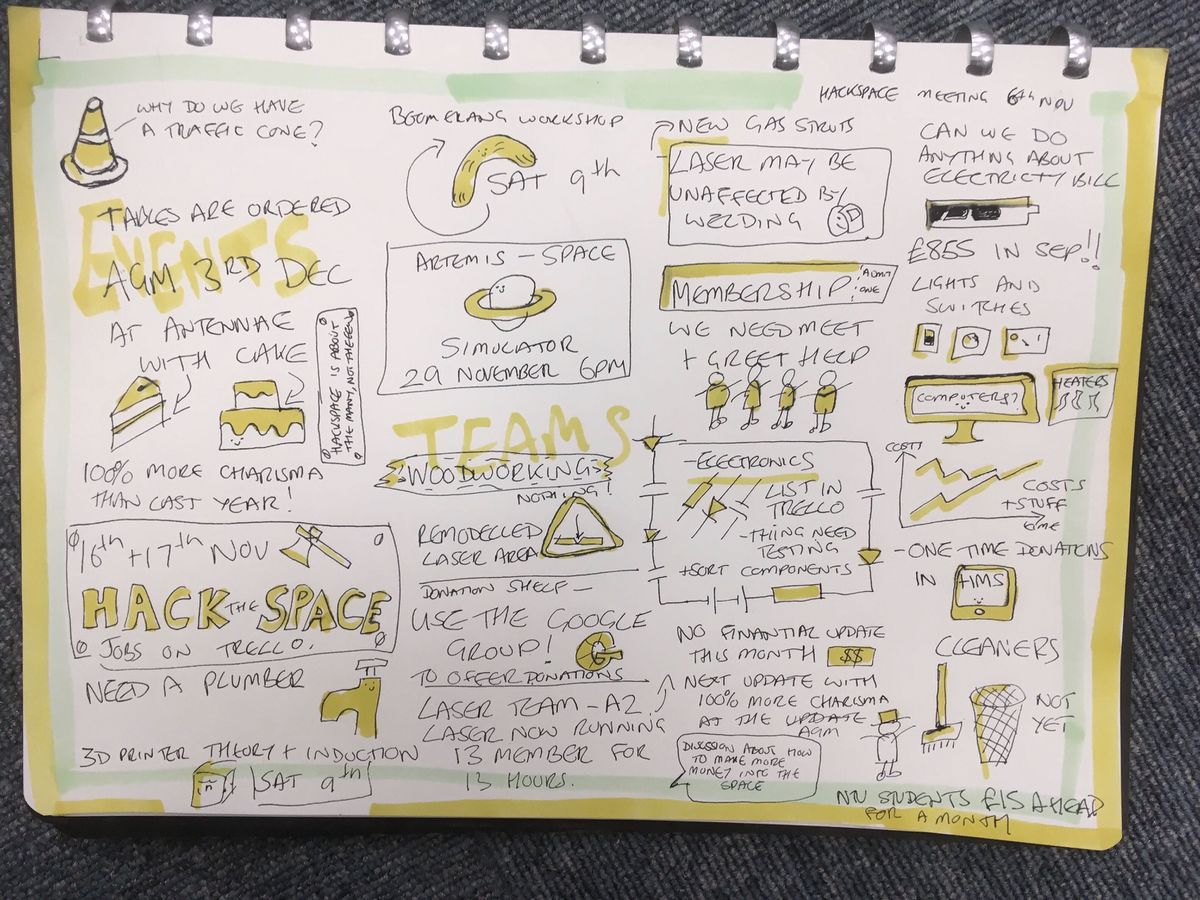 HACKSPACE MEETING 6th NOV
WHY DO WE HAVE
A TRAFFIC CONE?
EVENTS
TABLES ARE ORDERED
AGM 3RD DEC
AT ANTENNAE
WITH CAKE
HACKSPACE IS ABOUT
THE MANY, NOT THE FEW
100% MORE CHARISMA
THAN LAST YEAR!
16th + 17th NOV
HACK THE SPACE
JOBS ON TRELLO.
NEED A PLUMBER
3D PRINTER THEORY + INDUCTION
SAT 9th
BOOMERANG WORKSHOP
SAT 9th
ARTEMIS - SPACE
SIMULATOR
29 NOVEMBER 6PM
TEAMS
WOODWORKING
NOTHING!
REMODELLED
LASER AREA
DONATION SHELF -
USE THE GOOGLE
GROUP! G
TO OFFER DONATIONS
LASER TEAM - A2
LASER NOW RUNNING
13 MEMBER FOR
13 HOURS.
NEW GAS STRUTS
LASER MAY BE
UNAFFECTED BY
WELDING
MEMBERSHIP ADMIT
ONE
WE NEED MEET
+ GREET HELP
- ELECTRONICS
LIST IN
TRELLO
- THING NEED
TESTING
+ SORT COMPONENTS
NO FINANCIAL UPDATE
THIS MONTH $$
NEXT UPDATE WITH
100% MORE CHARISMA
AT THE UPDATE
AGM
DISCUSSION ABOUT HOW
TO MAKE MORE
MONEY INTO THE
SPACE
CAN WE DO
ANYTHING ABOUT
ELECTRICTY BILL
£855 IN SEP!!
LIGHTS AND
SWITCHES
COMPUTERS?
HEATERS
COSTS
COSTS
+ STUFF
time
- ONE TIME DONATIONS
IN HMS
CLEANERS
NOT
YET
NTU STUDENTS £15 A HEAD
FOR A MONTH